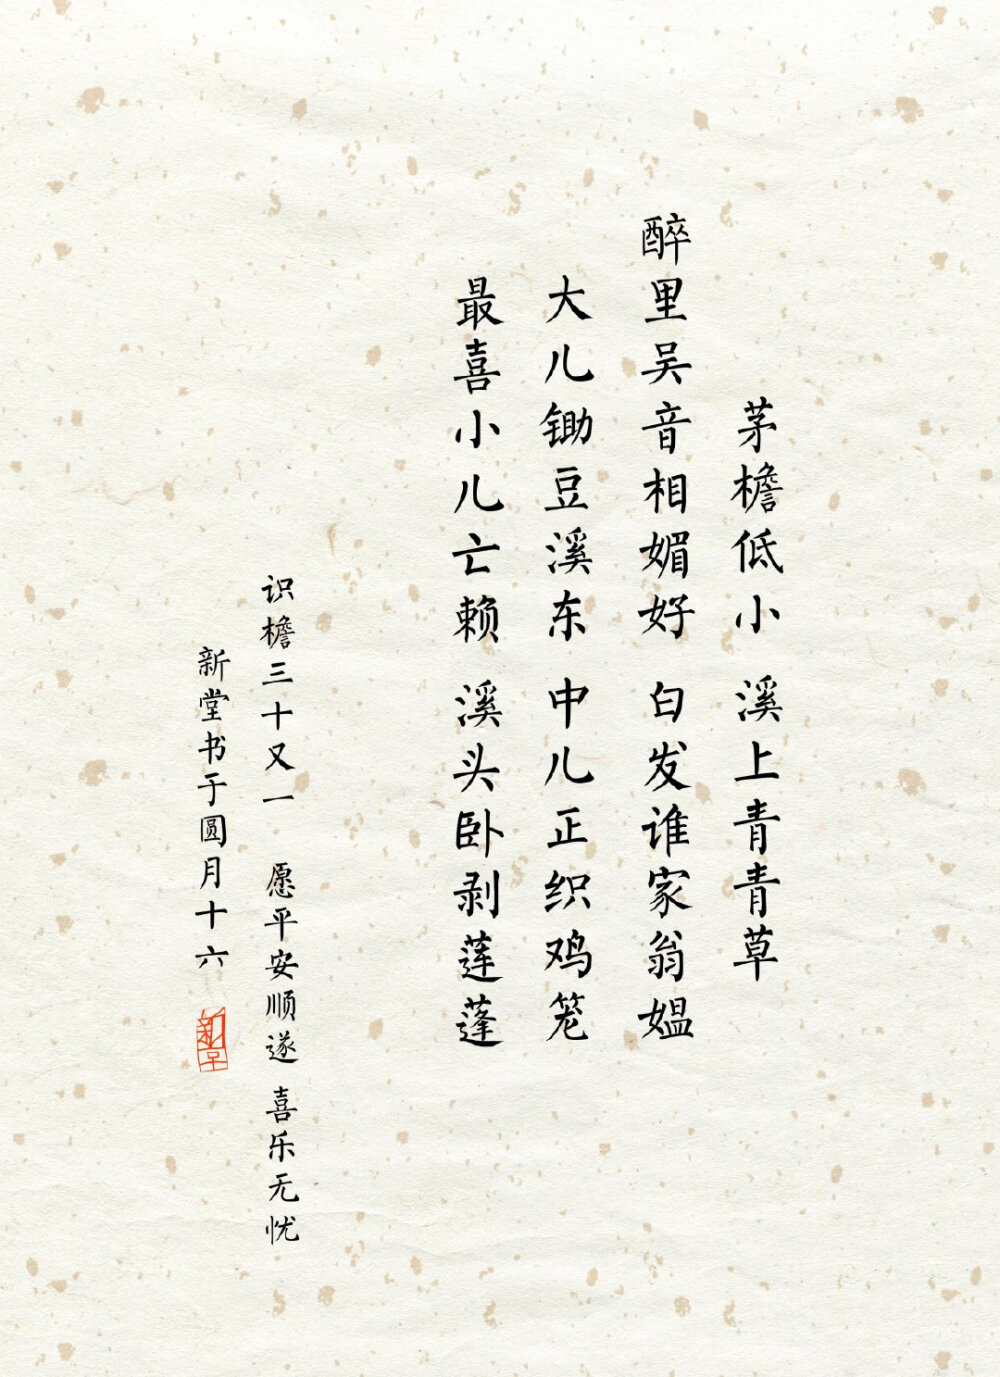 茅檐低小 溪上青青草
醉里吴音相媚好 白发谁家翁媪
大儿锄豆溪东 中儿正织鸡笼
最喜小儿亡赖 溪头卧剥莲蓬
识檐三十又一 愿平安顺遂 喜乐无忧
新堂书于圆月十六
新堂